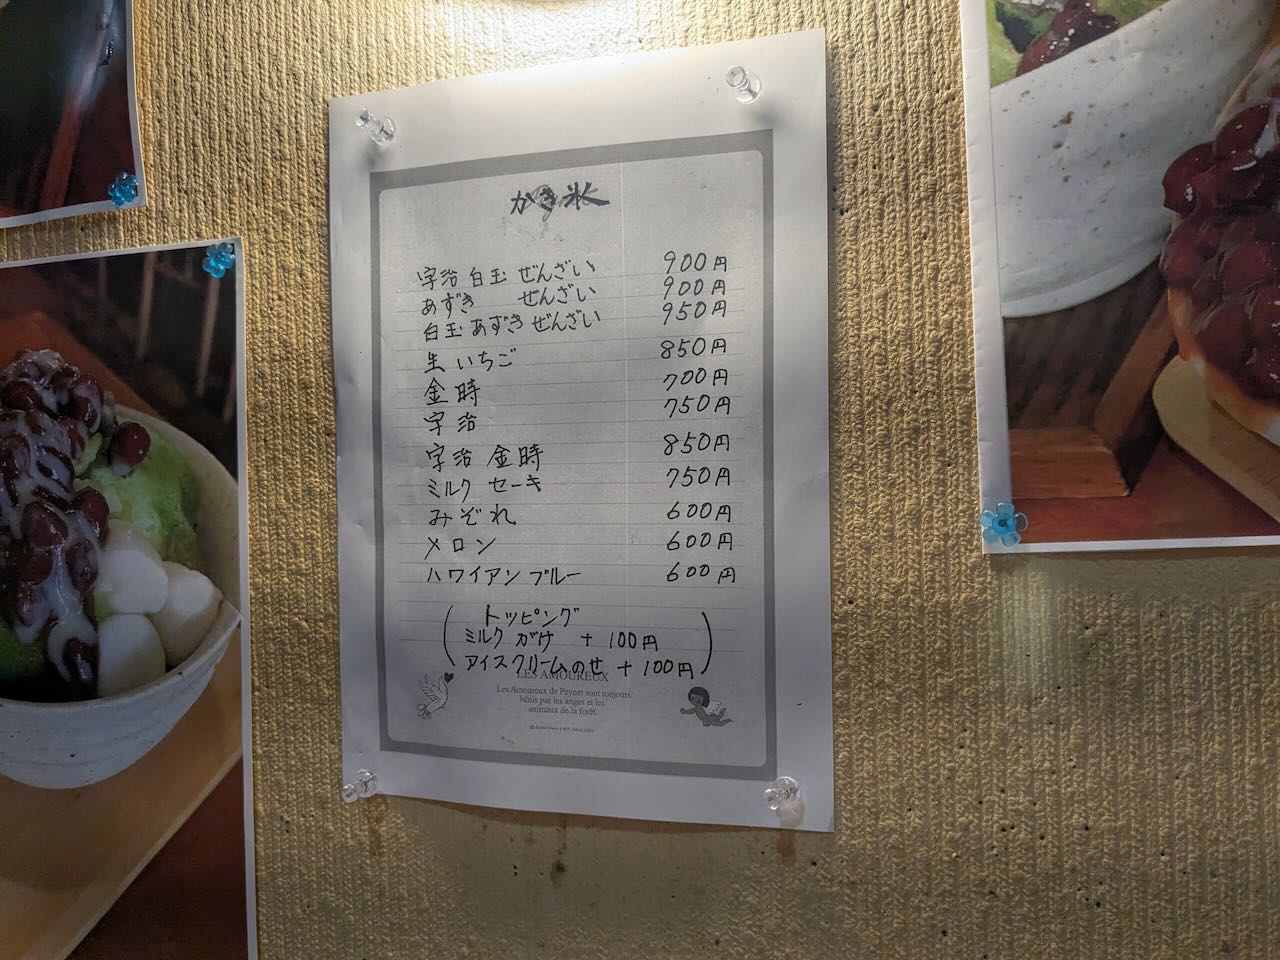 かき氷
宇治 白玉 ぜんざい 900円
あずき ぜんざい 900円
白玉 あずき ぜんざい 950円
生 いちご 850円
金時 700円
宇治 750円
宇治 金時 850円
ミルク セーキ 750円
みぞれ 600円
メロン 600円
ハワイアン ブルー 600円
(トッピング
ミルク がけ + 100円
アイスクリームのせ + 100円)
LES AMOUREUX
Les Amoureux de Peynet sont toujours
bénis par les anges et les
animaux de la forêt.